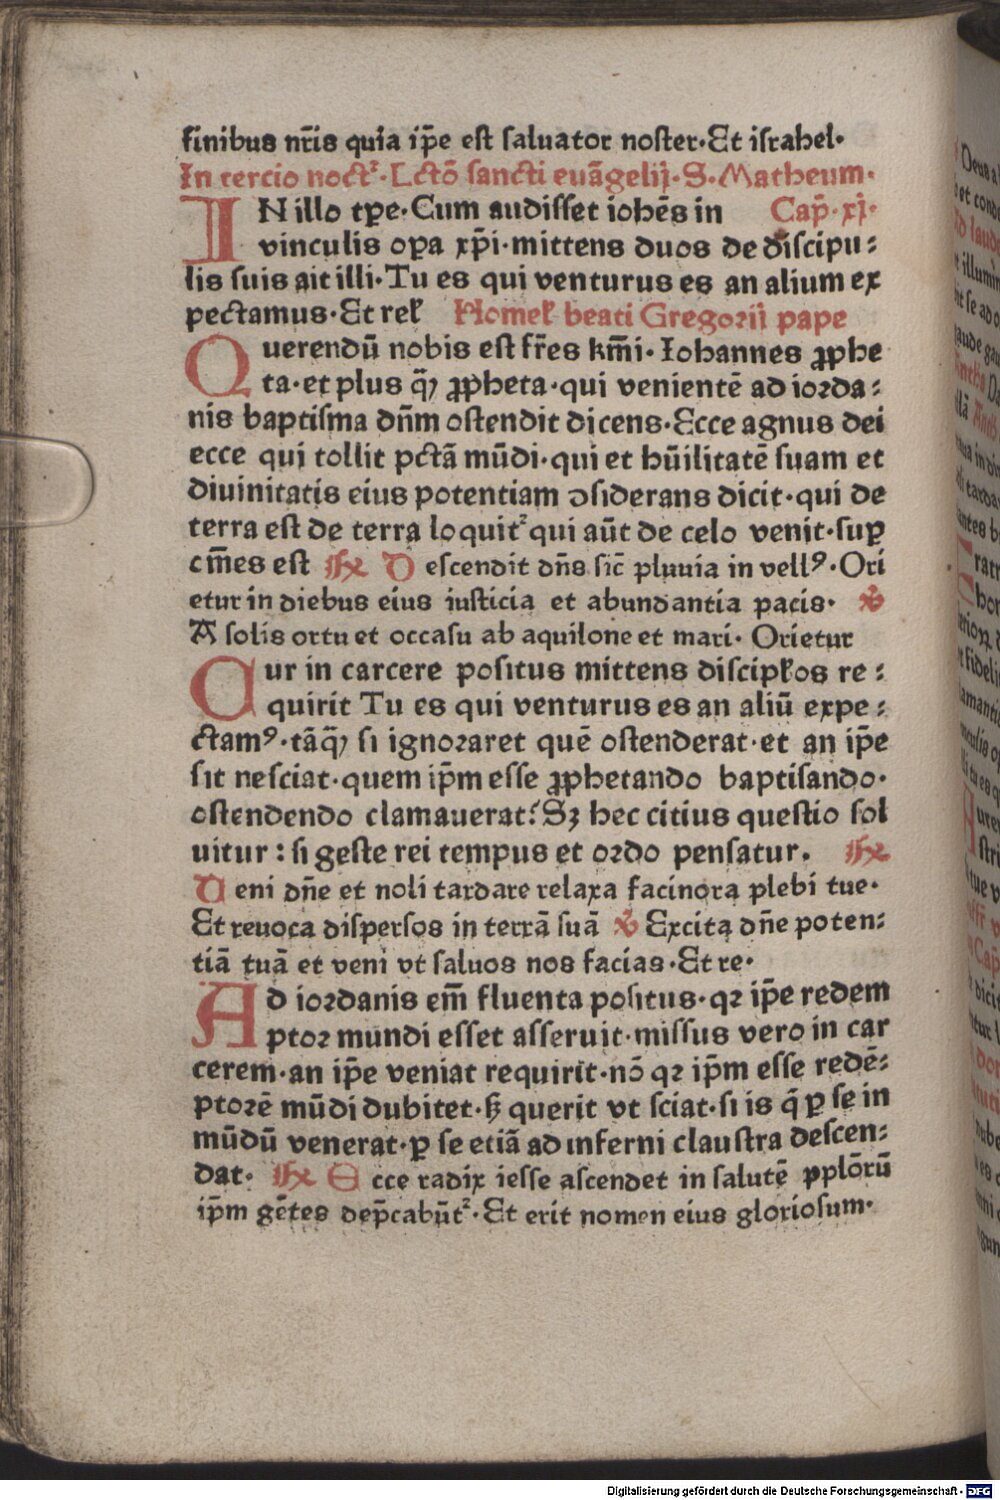 finibus nr̄is quia ip̄e est saluator noster·Et israhel·
In tercio noctꝰ·Lctō sancti euāgelij·S·Matheum·
IN illo tp̄e·Cum audisset iohēs in Cap̄·xj·
vinculis oꝑa xp̄i·mittens duos de discipu:
lis suis ait illi·Tu es qui venturus es an alium ex
pectamus·Et rel̄ Homel̄ beati Gregorij pape
Querendū nobis est fr̄es km̄i·Iohannes ꝓphe
ta·et plus q̄ꝫ ꝓpheta·qui venientē ad iorda:
nis baptisma dn̄m ostendit dicens·Ecce agnus dei
ecce qui tollit pctā mūdi·qui et hūilitatē suam et
diuinitatis eius potentiam ↄsiderans dicit·qui de
terra est de terra loquit᷑ qui aūt de celo venit·suꝑ
om̄es est ℟ Descendit dn̄s sic̄ pluuia in vellꝰ·Ori
etur in diebus eius iusticia et abundantia pacis· ℣
A solis ortu et occasu ab aquilone et mari· Orietur
Cur in carcere positus mittens discipl̄os re:
quirit Tu es qui venturus es an aliū expe:
ctamꝰ·tāq̄ꝫ si ignoraret quē ostenderat·et an ip̄e
sit nesciat·quem ip̄m esse ꝓphetando baptisando·
ostendendo clamauerat? Sꝫ hec citius questio sol
uitur: si geste rei tempus et ordo pensatur. ℟
Veni dn̄e et noli tardare relaxa facinora plebi tue·
Et reuoca dispersos in terrā suā ℣ Excita dn̄e poten:
tiā tuā et veni vt saluos nos facias·Et re·
Ad iordanis em̄ fluenta positus·qꝛ ip̄e redem
ptor mundi esset asseruit·missus vero in car
cerem·an ip̄e veniat requirit·nō qꝛ ip̄m esse redē:
ptorē mūdi dubitet·ꝫ querit vt sciat·si is q̄ ꝑ se in
mūdū venerat·ꝑ se etiā ad inferni claustra descen:
dat· ℟ Ecce radix iesse ascendet in salutē pplōrū
ip̄m gētes dep̄cabūt᷑·Et erit nomen eius gloriosum·
Digitalisierung gefördert durch die Deutsche Forschungsgemeinschaft - DFG